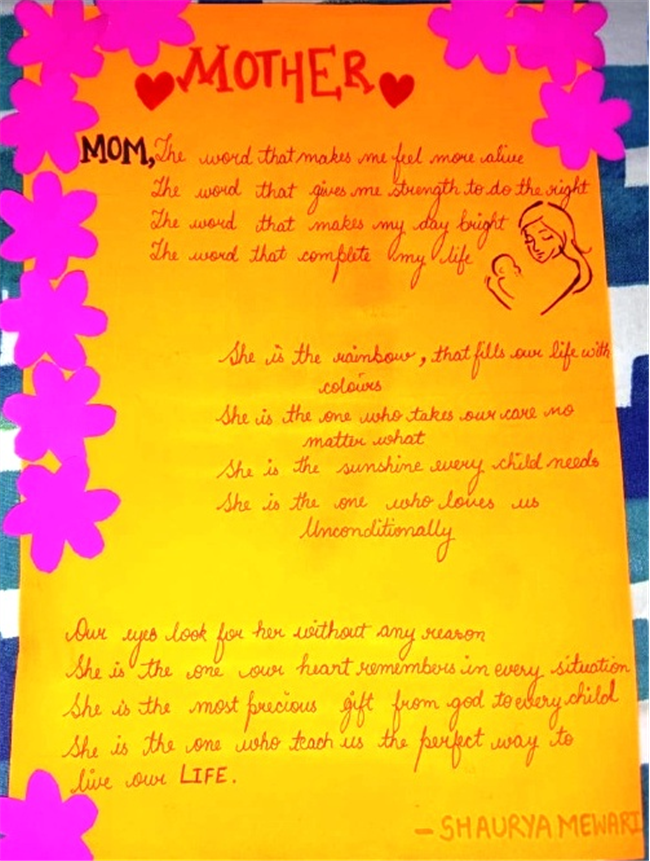 MOTHER
MOM, The word that makes me feel more alive
The word that gives me strength to do the right
The word that makes my day bright
The word that complete my life
She is the rainbow, that fills our life with
colours
She is the one who takes our care no
matter what
She is the sunshine every child needs
She is the one who loves us
Unconditionally
Our eyes look for her without any reason
She is the one our heart remembers in every situation
She is the most precious gift from god to every child
She is the one who teach us the perfect way to
live our LIFE.
- SHAURYA MEWARI